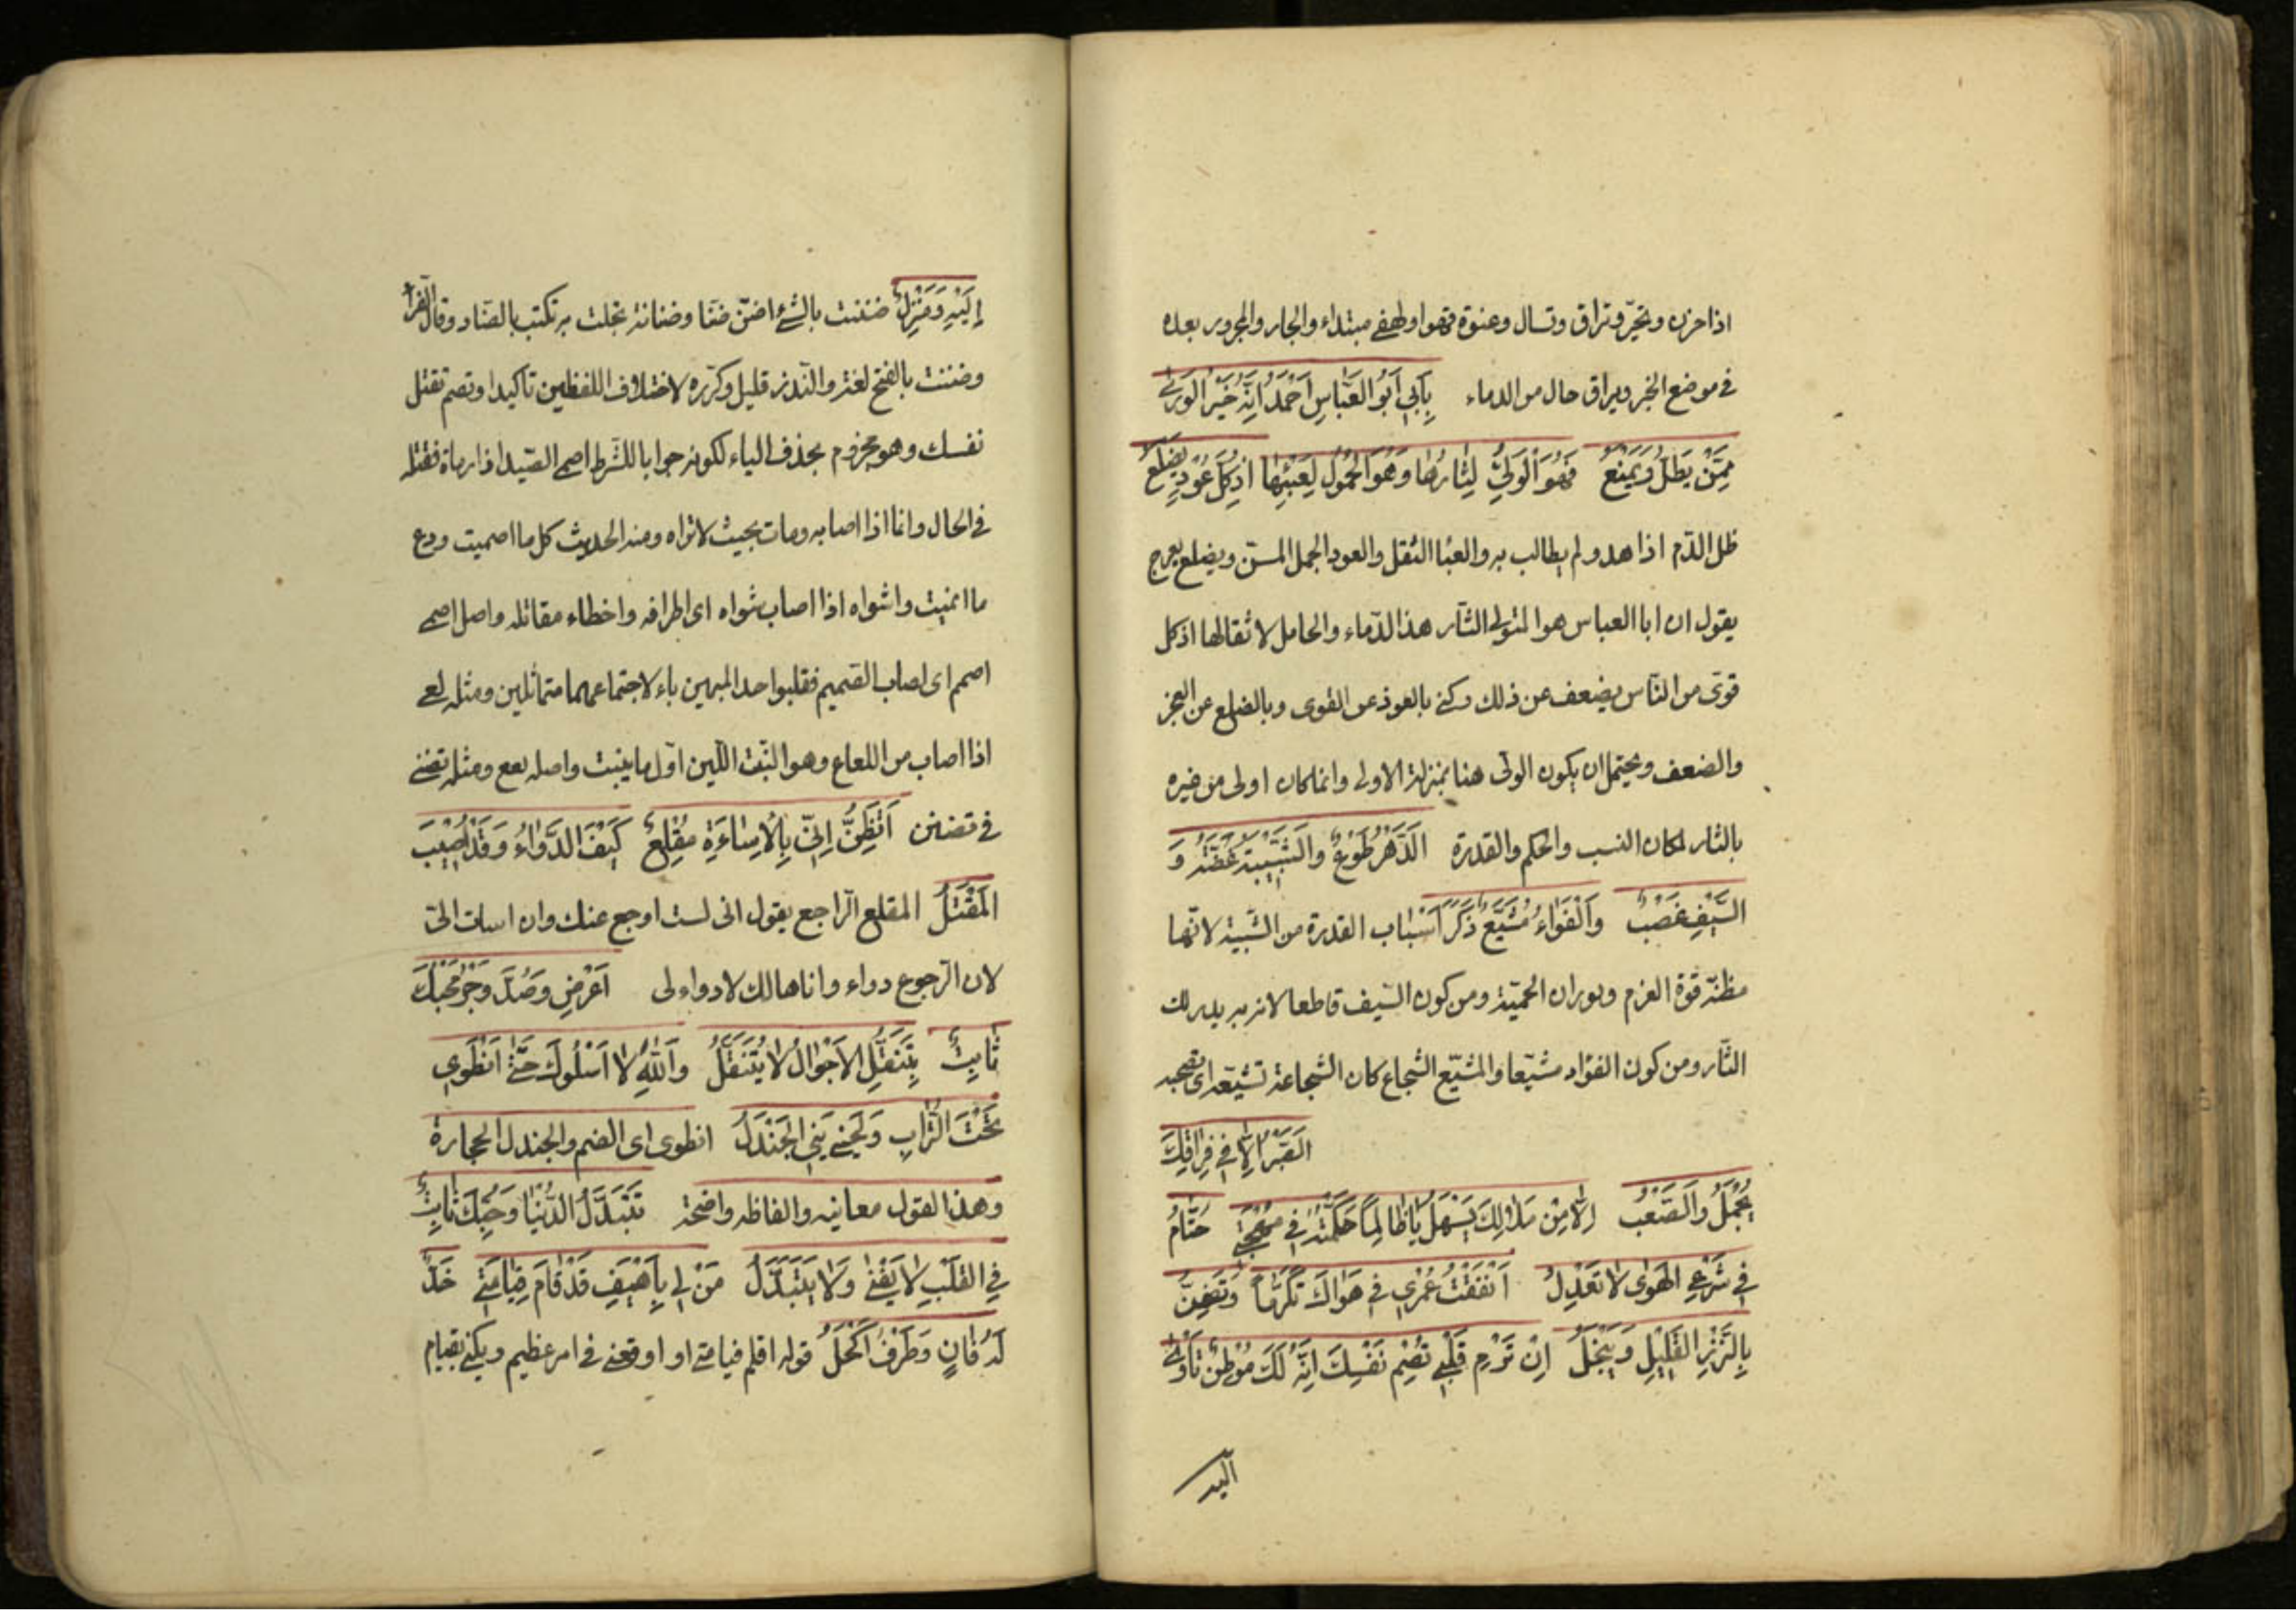 اذا حزن وتحير وتراق وتسال وعنوة قهوا ولهفي مبتداء والجار والمجرور بعده
في موضع الخبر ويراق حال من الدماء بِاَبي اَبُو العَبَّاسِ اَحْمَدُ اِنَّهُ خَيْرُ الوَرٰى
مِمَّنْ يَطُلُّ وَيَمْنَعُ فَهُوَ الوَلِيُّ لِثارِهٰا وَهُوَ الحَمُولُ لِعَبْئِهٰا اذ كُلُّ عَوْدٍ يَضْلَعُ
طل الدّم اذا هدر ولم يطالب به والعبْا الثقل والعود الجمل المسنّ ويضلع يعرج
يقول ان ابا العباس هو المتولى الثآر هذا الدّماء والحامل لاثقالها اذ كل
قوىّ من النّاس يضعف عن ذلك وكنى بالعود عن القوى وبالضلع عن العجز
والضعف ويحتمل ان يكون الولى هنا بمنزلة الاولى وانما كان اولى من غيره
بالثار لمكان النسب والحكم والقدرة الدَّهْرُ طَوْعٌ والشَّبيبَةُ غَضَّةٌ وَ
السَّيْفُ عَضْبٌ وَالْفُوَاءُ مُشَيَّعٌ ذَكَرَ اَسْبٰاب القدرة من الشّبيبة لانّها
مظنّة قوّة العزم وثوران الحميّة ومن كون السّيف قاطعا لانه به يدرك
الثّار ومن كون الفؤاد مشيّعا والمشيّع الشجاع كان الشجاعة تشيّعه اى تصحبه
الصَّبْرُ اِلّا في فِرٰاقِكَ
يُجْمَلُ وَالصَّعْبُ اِلّا مِنْ مَلٰالِكَ يَسْهُلُ يٰا ظٰالِماً حَكَّمْتُهُ فِي مُهْجَتِي حَتّٰامَ
في شَرْعِ الهَوٰى لا تَعْدِلُ اَنْفَقْتُ عُمْري في هَوَاكَ تَكَرُّماً وَتَضِنُّ
بِالنَّزْرِ القَلِيْلِ وَتَبْخَلُ اِنْ تَرْمِ قَلْبي تُصْمِ نَفْسِكَ اِنَّهُ لَكَ مَوْطِنٌ تَأْوي
اليه
اِلَيْهِ وَمَنْزِلٌ ضننت بالشّئ اضنّ ضنّا وضنانة بخلت به تكتب بالضّاد وقال الفرّاء
وضننت بالفتح لغة والنّذر قليل وكرّره لاختلاف اللفظين تأكيدا وتصم تقتل
نفسك وهو مجزوم بحذف الياء لكونه جوابا للشّرط اصمى الصّيد اذا رماه فقتله
في الحال وانما اذا اصابه ومات بحيث لا تراه ومنه الحديث كل ما اصميت ودع
ما انميت واشواه اذا اصاب شواه اى اطرافه واخطاء مقاتله واصل اصمى
اصمم اى اصاب الصّميم فقلبوا احد الميمين ياء لاجتماعهما متماثلين ومثله لعى
اذا اصاب من اللعاع وهو النّبت اللّين اوّل ما ينبت واصله لعع ومثله تضنى
في تضنن اَتَظُنُّ اِنِّيْ بِالْاِسٰاءَةِ مُقْلِعٌ كَيْفَ الدَّوٰاءُ وَقَدْ اُصِيْبَ
المَقْتَلُ المقلع الرّاجع يقول انى لست ارجع عنك وان اسات الىّ
لان الرّجوع دواء وانا هالك لا دواء لى اَعْرِضِ وَصُدَّ وَجُرْ فَحُبُّكَ
ثٰابِتٌ بِتَنَقُّلِ الاَحْوٰالِ لاٰ يَتَنَقَّلُ وَاللهِ لاٰ اَسْلُوْكَ حَتّٰى اَنْطَوِي
تَحْتَ التُّرٰابِ وَيَحْتَوِينِي الجَنْدَلُ انطوى اى الضم والجندل الحجارة
وهذا القول معانيه والفاظه واضحة تَتَبَدَّلُ الدُّنْيٰا وَحُبُّكَ ثٰابِتٌ
فِي القَلْبِ لاٰ يَفْنٰى وَلاٰ يَتَبَدَّلُ مَنْ لِي بِاَهْيَفِ قَدْ قٰامَ قِيٰامَتِي خَدٌّ
لَهُ قٰانٍ وَطَرْفٌ اَكْحَلُ قوله اقام قيامتى او اوقعنى في امر عظيم ويكنى بقيام